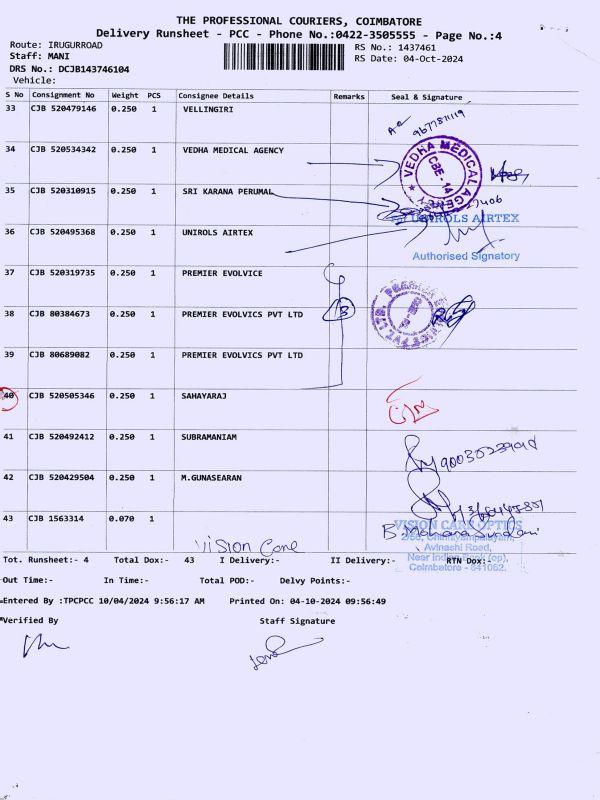 THE PROFESSIONAL COURIERS, COIMBATORE
Delivery Runsheet - PCC - Phone No.:0422-3505555 - Page No.:4
Route: IRUGURROAD
RS No.: 1437461
Staff: MANI
RS Date: 04-Oct-2024
DRS No.: DCJB143746104
Vehicle:
S No Consignment No Weight PCS Consignee Details Remarks Seal & Signature
33 CJB 520479146 0.250 1 VELLINGIRI
34 CJB 520534342 0.250 1 VEDHA MEDICAL AGENCY
VEDHA MEDICAL AGENCY
CBE - 14
35 CJB 520310915 0.250 1 SRI KARANA PERUMAL
UNIROLS AIRTEX
36 CJB 520495368 0.250 1 UNIROLS AIRTEX
Authorised Signatory
37 CJB 520319735 0.250 1 PREMIER EVOLVICE
38 CJB 80384673 0.250 1 PREMIER EVOLVICS PVT LTD
39 CJB 80689082 0.250 1 PREMIER EVOLVICS PVT LTD
40 CJB 520505346 0.250 1 SAHAYARAJ
41 CJB 520492412 0.250 1 SUBRAMANIAM
42 CJB 520429504 0.250 1 M.GUNASEARAN
43 CJB 1563314 0.070 1
VISION CARE OPTICS
Avinashi Road,
Vision Care
Near Indian Bank (op),
Coimbatore - 641062.
Tot. Runsheet:- 4 Total Dox:- 43 I Delivery:- II Delivery:- RTN Dox:-
Out Time:- In Time:- Total POD:- Delvy Points:-
Entered By :TPCPCC 10/04/2024 9:56:17 AM Printed On: 04-10-2024 09:56:49
Verified By Staff Signature